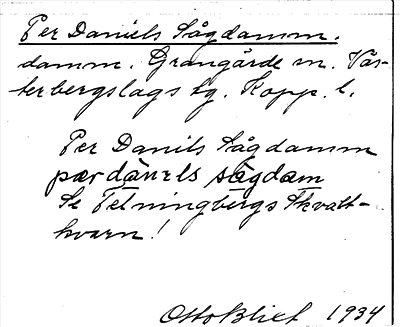 Per Daniels Sågdamm.
damm. Grangärde sn. Väs-
terbergslags tg. Kopp. l.
Per Danils Sågdamm
pærdànels sågdam
Se Tetningbergs Skvalt-
kvarn!
Otto Blixt 1934